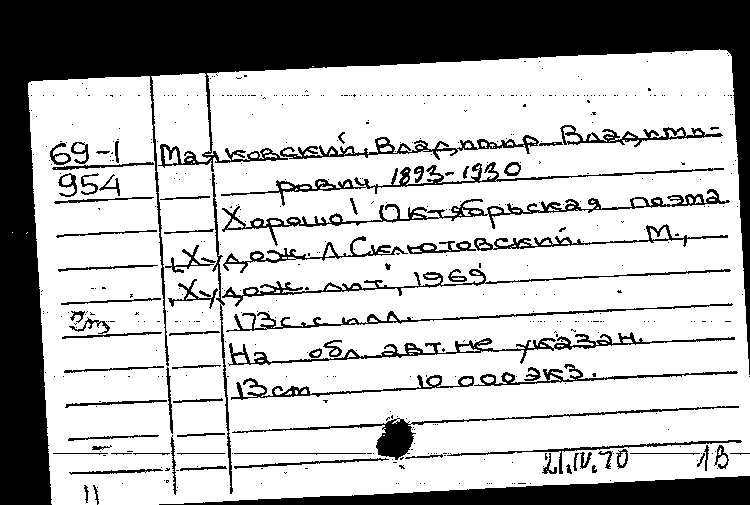 69-1 Маяковский, Владимир Владими-
954 рович, 1893-1930
Хорошо! Октябрьская поэма.
„Худож. Л. Скльютовский. М.,
„Худож. лит.", 1969
2т 173 с. с илл.
На обл. авт. не указан.
13 см. 10 000 экз.
21.IV.70 1В
11